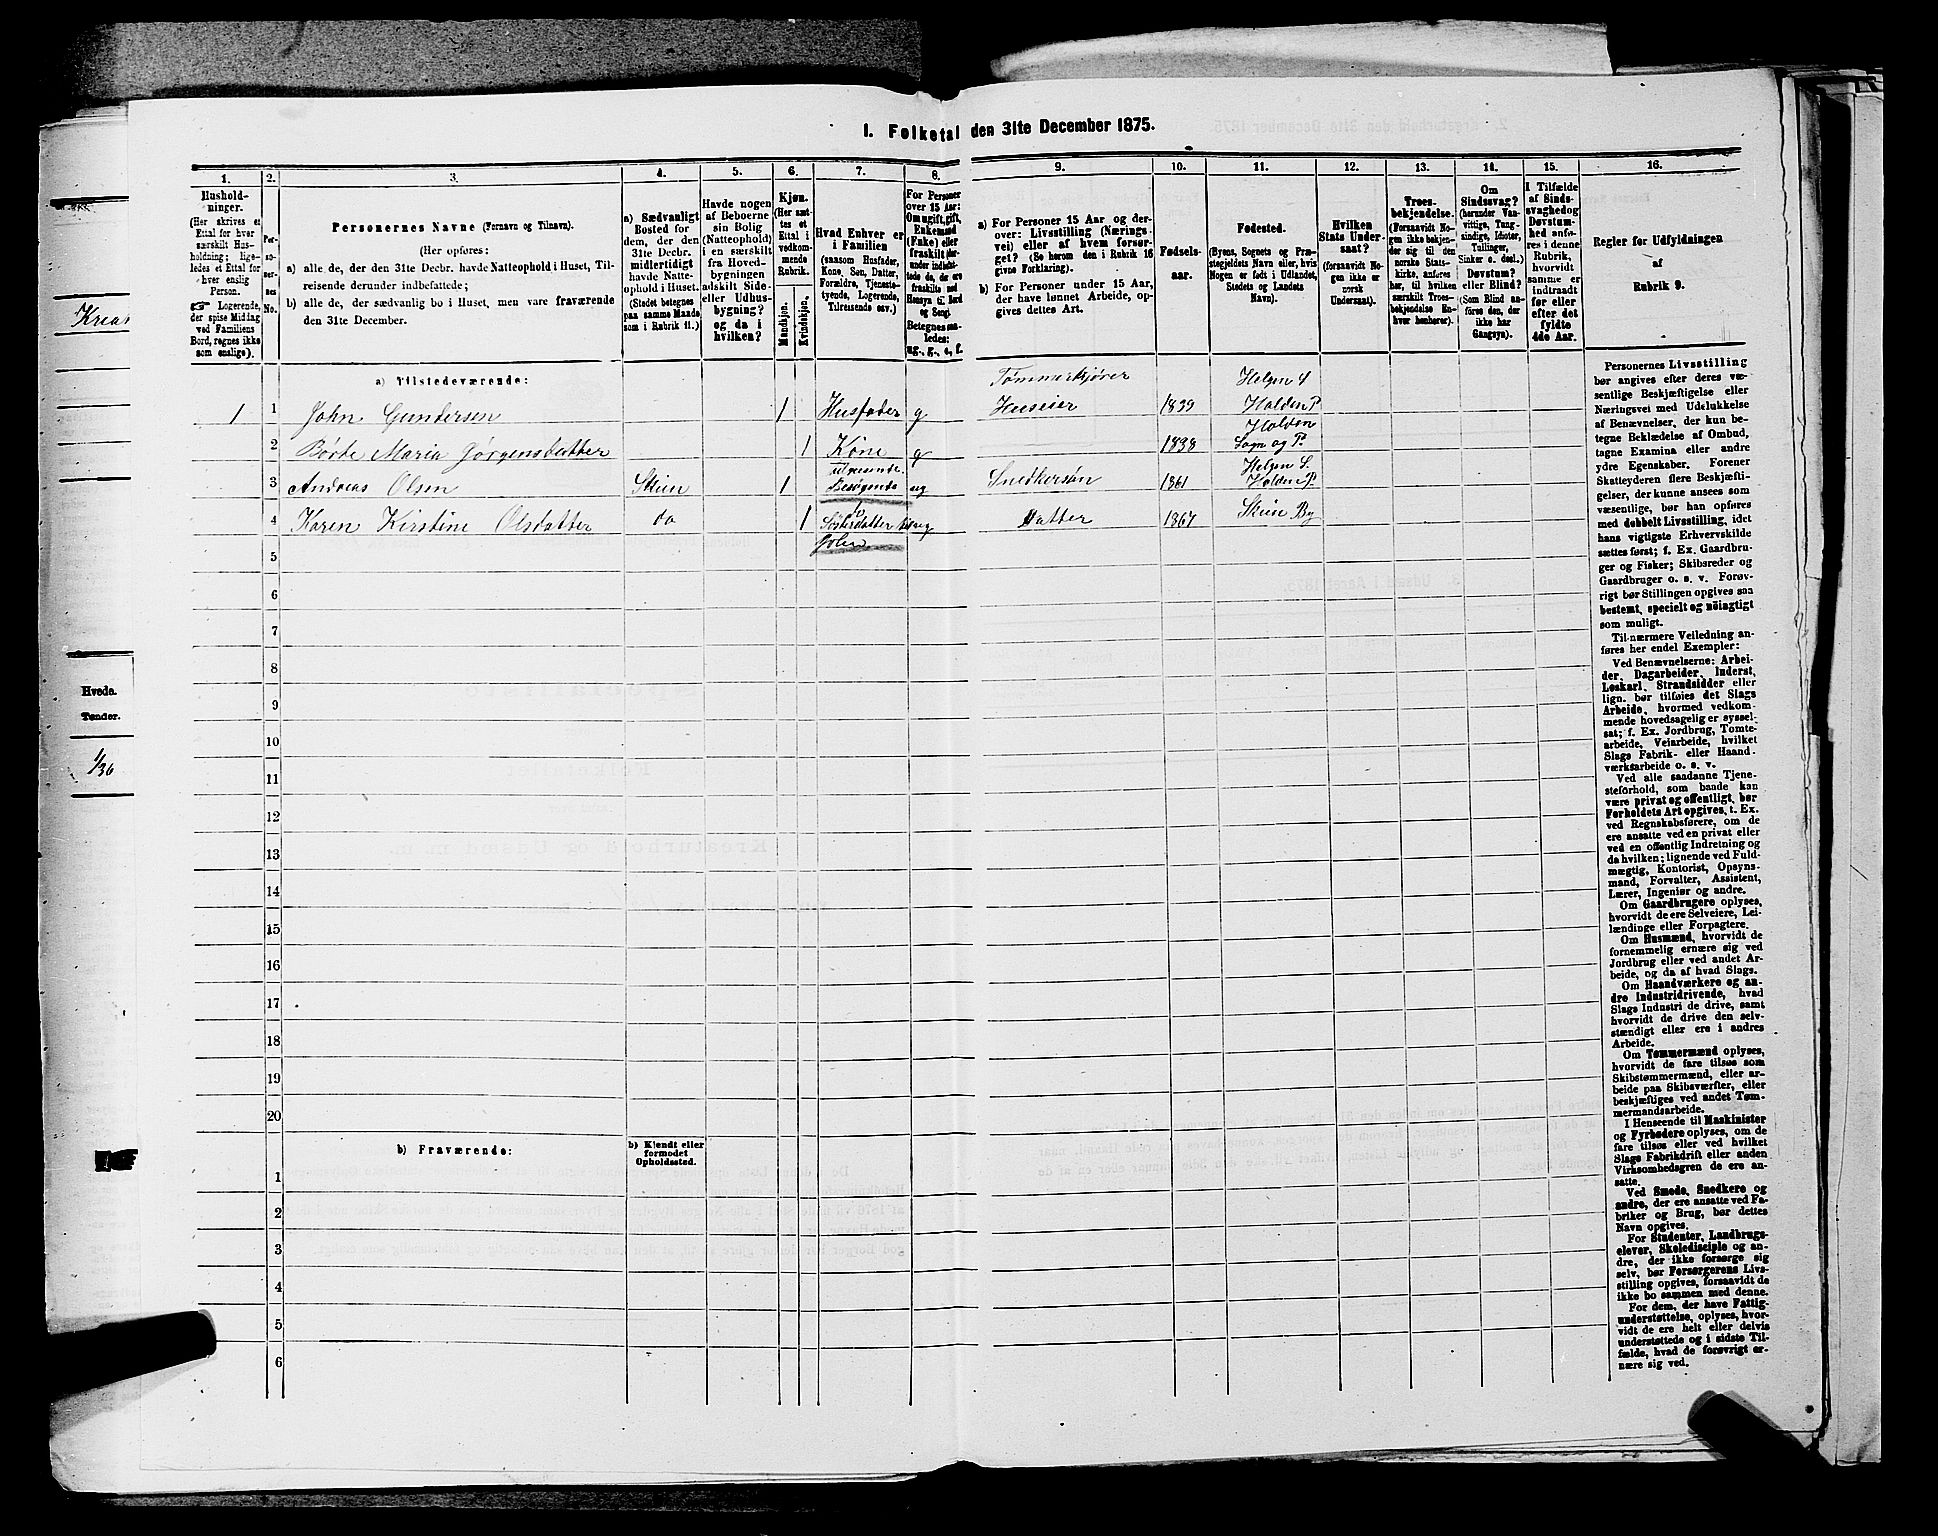 1. Folketal den 31te December 1875.
1. 2. 3. 4. 5. 6. 7. 8. 9. 10. 11. 12. 13. 14. 15. 16.
Husholdninger.
(Her skrives et
Ettal for hver
særskilt Husholdning;
ligeledes et Ettal for
hver enslig
Person.
Logerende,
der spise Middag
ved Familiens
Bord, regnes ikke
som enslige).
Personernes No.
Personernes Navne (Fornavn og Tilnavn).
(Her opføres:
a) alle de, der den 31te Decbr. havde Natteophold i Huset, Tilreisende
derunder indbefattede;
b) alle de, der sædvanlig bo i Huset, men vare fraværende
den 31te December.
a) Sædvanligt
Bosted for
dem, der den
31te Decbr.
midlertidigt
havde Natteophold
i Huset.
(Stedet betegnes
paa samme Maade
som i Rubrik 11.)
Havde nogen
af Beboerne
sin Bolig
(Natteophold)
i en særskilt
fra Hovedbygningen
adskilt Side-
eller Udhusbygning?
og da i
hvilken?
Kjøn.
(Her sættes
et
Ettal i
vedkommende
Rubrik.
Mandkjøn.
Kvindekjøn.
Hvad Enhver er
i Familien
(saasom Husfader,
Kone, Søn, Datter,
Forældre, Tjenestetyende,
Logerende,
Tilreisende osv.)
For Personer
over 15 Aar:
Om ugift, gift,
Enkemand
(Enke) eller
fraskilt
Betegnes saaledes:
ug., g., e, f.
a) For Personer 15 Aar og derover:
Livsstilling (Næringsvei)
eller af hvem forsørget?
(Se herom den i Rubrik 16
givne Forklaring).
b) For Personer under 15 Aar,
der have lønnet Arbeide, opgives
dettes Art.
Fødselsaar.
Fødested.
(Byens, Sognets og Præstegjeldets
Navn eller, hvis
Nogen er født i Udlandet,
Stedets og Landets
Navn).
Hvilken
Stats Undersaat?
(forsaavidt Nogen
ikke er
norsk
Undersaat).
Troesbekjendelse.
(Forsaavidt Nogen
ikke bekjender
sig til den
norske Statskirke,
anføres
her, til hvilken
særskilt Troesbekjendelse
Enhver
henhører).
Om
Sindssvag?
(herunder Vanvittige,
Tungsindige,
Idioter,
Tullinger,
Sinker o. desl.)
Døvstum?
eller Blind?
(Som Blind anføres
den, der
ikke har
Gangsyn).
I Tilfælde
af Sindssvaghed
og Døvstumhed
anføres
i denne
Rubrik,
hvorvidt
samme er
indtraadt
før eller
efter det
fyldte
4de Aar.
Regler for Udfyldningen
af
Rubrik 9.
a) Tilstedeværende:
Tømmerkjører Helgen S
1 1 John Gundersen 1 Husfader g Huseier 1839 Holden P
Holden
2 Børte Maria Jørgensdatter 1 Kone g 1838 Sogn og P.
Helgen S.
3 Andreas Olsen Skien 1 Besøgende ug Snedkersøn 1861 Holden P
4 Karen Kirstine Olsdatter do 1 Søsterdatter ug Datter 1867 Skien By
5
6
7
8
9
10
11
12
13
14
15
16
17
18
19
20
b) Fraværende:
b) Kjendt eller
formodet
Opholdssted.
1
2
3
4
5
6
Personernes Livsstilling
bør angives efter deres væsentlige
Beskjæftigelse eller
Næringsvei med Udelukkelse
af Benævnelser, der kun betegne
Beklædelse af Ombud,
tagne Examina eller andre
ydre Egenskaber. Forener
Skatteyderen flere Beskjæftigelser,
der kunne ansees som
væsentlige, bør han opføres
med dobbelt Livsstilling, idet
hans vigtigste Erhvervskilde
sættes først; f. Ex. Gaardbruger
og Fisker; Skibsreder og
Gaardbruger o. s. v. Forøvrigt
bør Stillingen opgives saa
bestemt, specielt og nøiagtigt
som muligt.
Til nærmere Veiledning anføres
her endel Exempler:
Ved Benævnelserne: Arbeider,
Dagarbeider, Inderst,
Løskarl, Strandsidder eller
lign. bør tilføies det Slags
Arbeide, hvormed vedkommende
hovedsagelig er sysselsat;
f. Ex. Jordbrug, Tomtearbeide,
Veiarbeide, hvilket
Slags Fabrik- eller Haandværksarbeide
o. s. v.
Ved alle saadanne Tjenesteforhold,
som baade kan
være privat og offentligt, bør
Forholdets Art opgives, t. Ex.
ved Regnskabsførere, om de
ere ansatte ved en privat eller
ved en offentlig Indretning og
da hvilken; lignende ved Fuldmægtig,
Kontorist, Opsynsmand,
Forvalter, Assistent,
Lærer, Ingeniør og andre.
Om Gaardbrugere oplyses,
hvorvidt de ere Selveiere, Leilændinge
eller Forpagtere.
Om Husmænd, hvorvidt de
fornemmelig ernære sig ved
Jordbrug eller ved andet Arbeide,
og da af hvad Slags.
Om Haandværkere og andre
Industridrivende, hvad
Slags Industri de drive, samt
hvorvidt de drive den selvstændigt
eller ere i andres
Arbeide.
Om Tømmermænd oplyses,
hvorvidt de fare tilsøs som
Skibstømmermænd, eller arbeide
paa Skibsværfter, eller
beskjæftiges ved andet Tømmermandsarbeide.
I Henseende til Maskinister
og Fyrbødere oplyses, om de
fare tilsøs eller ved hvilket
Slags Fabrikdrift eller anden
Virksomhedsgren de ere ansatte.
Ved Smede, Snedkere og
andre, der ere ansatte ved Fabriker
og Brug, bør dettes
Navn opgives.
For Studenter, Landbrugselever,
Skoledisciple og andre,
der ikke forsørge sig
selv, bør Forsørgerens Livsstilling
opgives, forsaavidt de
ikke bo sammen med denne.
For dem, der have Fattigunderstøttelse,
oplyses, hvorvidt
de ere helt eller delvis
understøttede og i sidste Tilfælde,
hvad de forøvrigt ernære
sig ved.
Hvede.
Tønder.
1/36